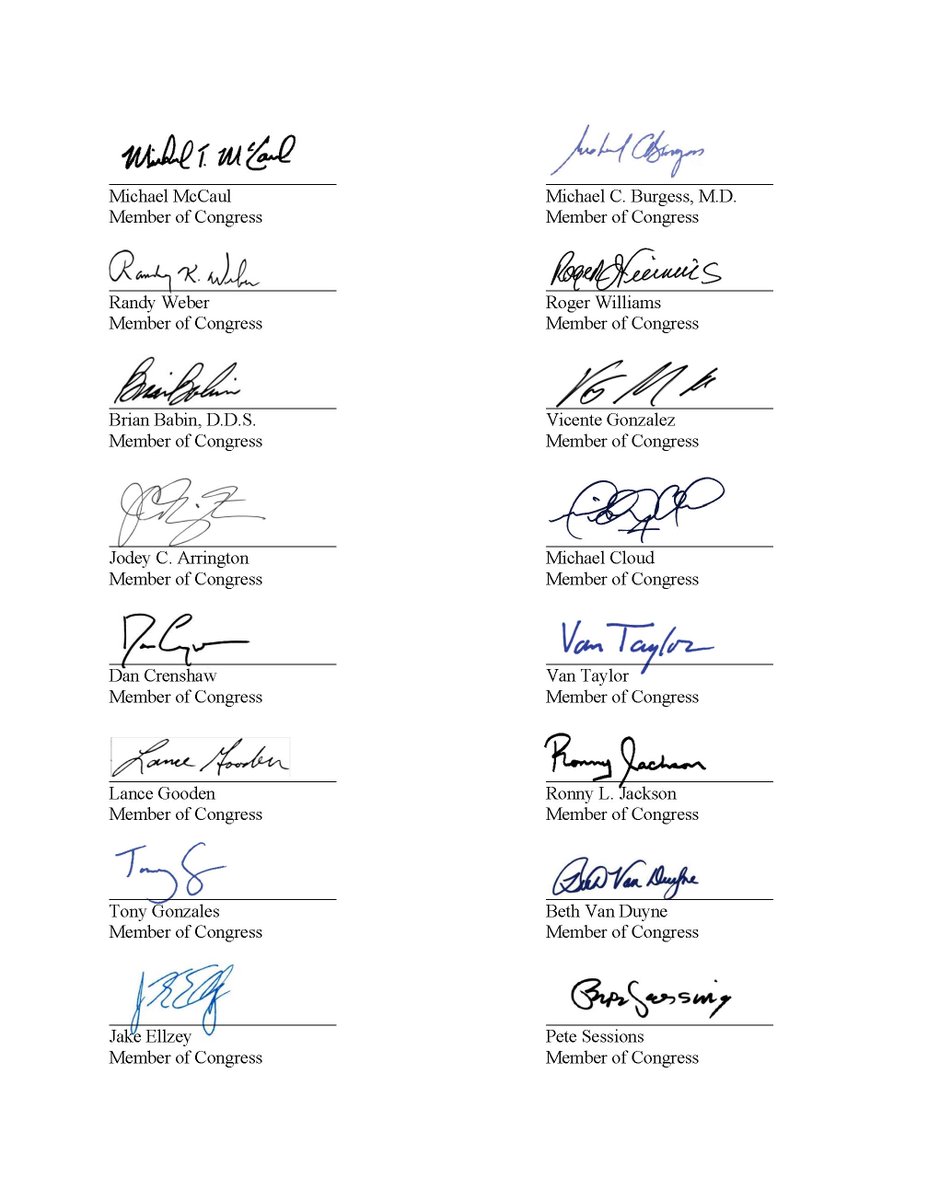 Michael T. McCaul
Michael McCaul
Member of Congress
Michael C. Burgess, M.D.
Member of Congress
Randy K. Weber
Randy Weber
Member of Congress
Roger Williams
Roger Williams
Member of Congress
Brian Babin
Brian Babin, D.D.S.
Member of Congress
Vicente Gonzalez
Member of Congress
Jodey C. Arrington
Member of Congress
Michael Cloud
Member of Congress
Dan Crenshaw
Member of Congress
Van Taylor
Van Taylor
Member of Congress
Lance Gooden
Lance Gooden
Member of Congress
Ronny Jackson
Ronny L. Jackson
Member of Congress
Tony G
Tony Gonzales
Member of Congress
Beth Van Duyne
Beth Van Duyne
Member of Congress
Jake Ellzey
Member of Congress
Pete Sessions
Pete Sessions
Member of Congress